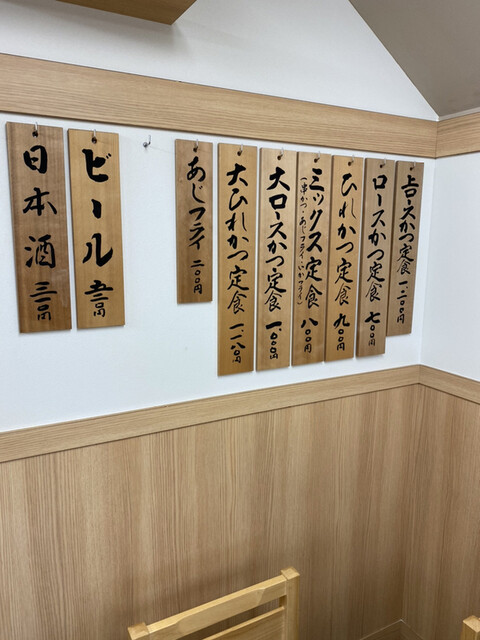 上ロースかつ定食 一、二〇〇円
ロースかつ定食 七〇〇円
ひれかつ定食 九〇〇円
ミックス定食 八〇〇円
(串かつ・あじフライ・いかフライ)
大ロースかつ定食 一、〇〇〇円
大ひれかつ定食 一、一八〇円
あじフライ 二〇〇円
ビール
日本酒